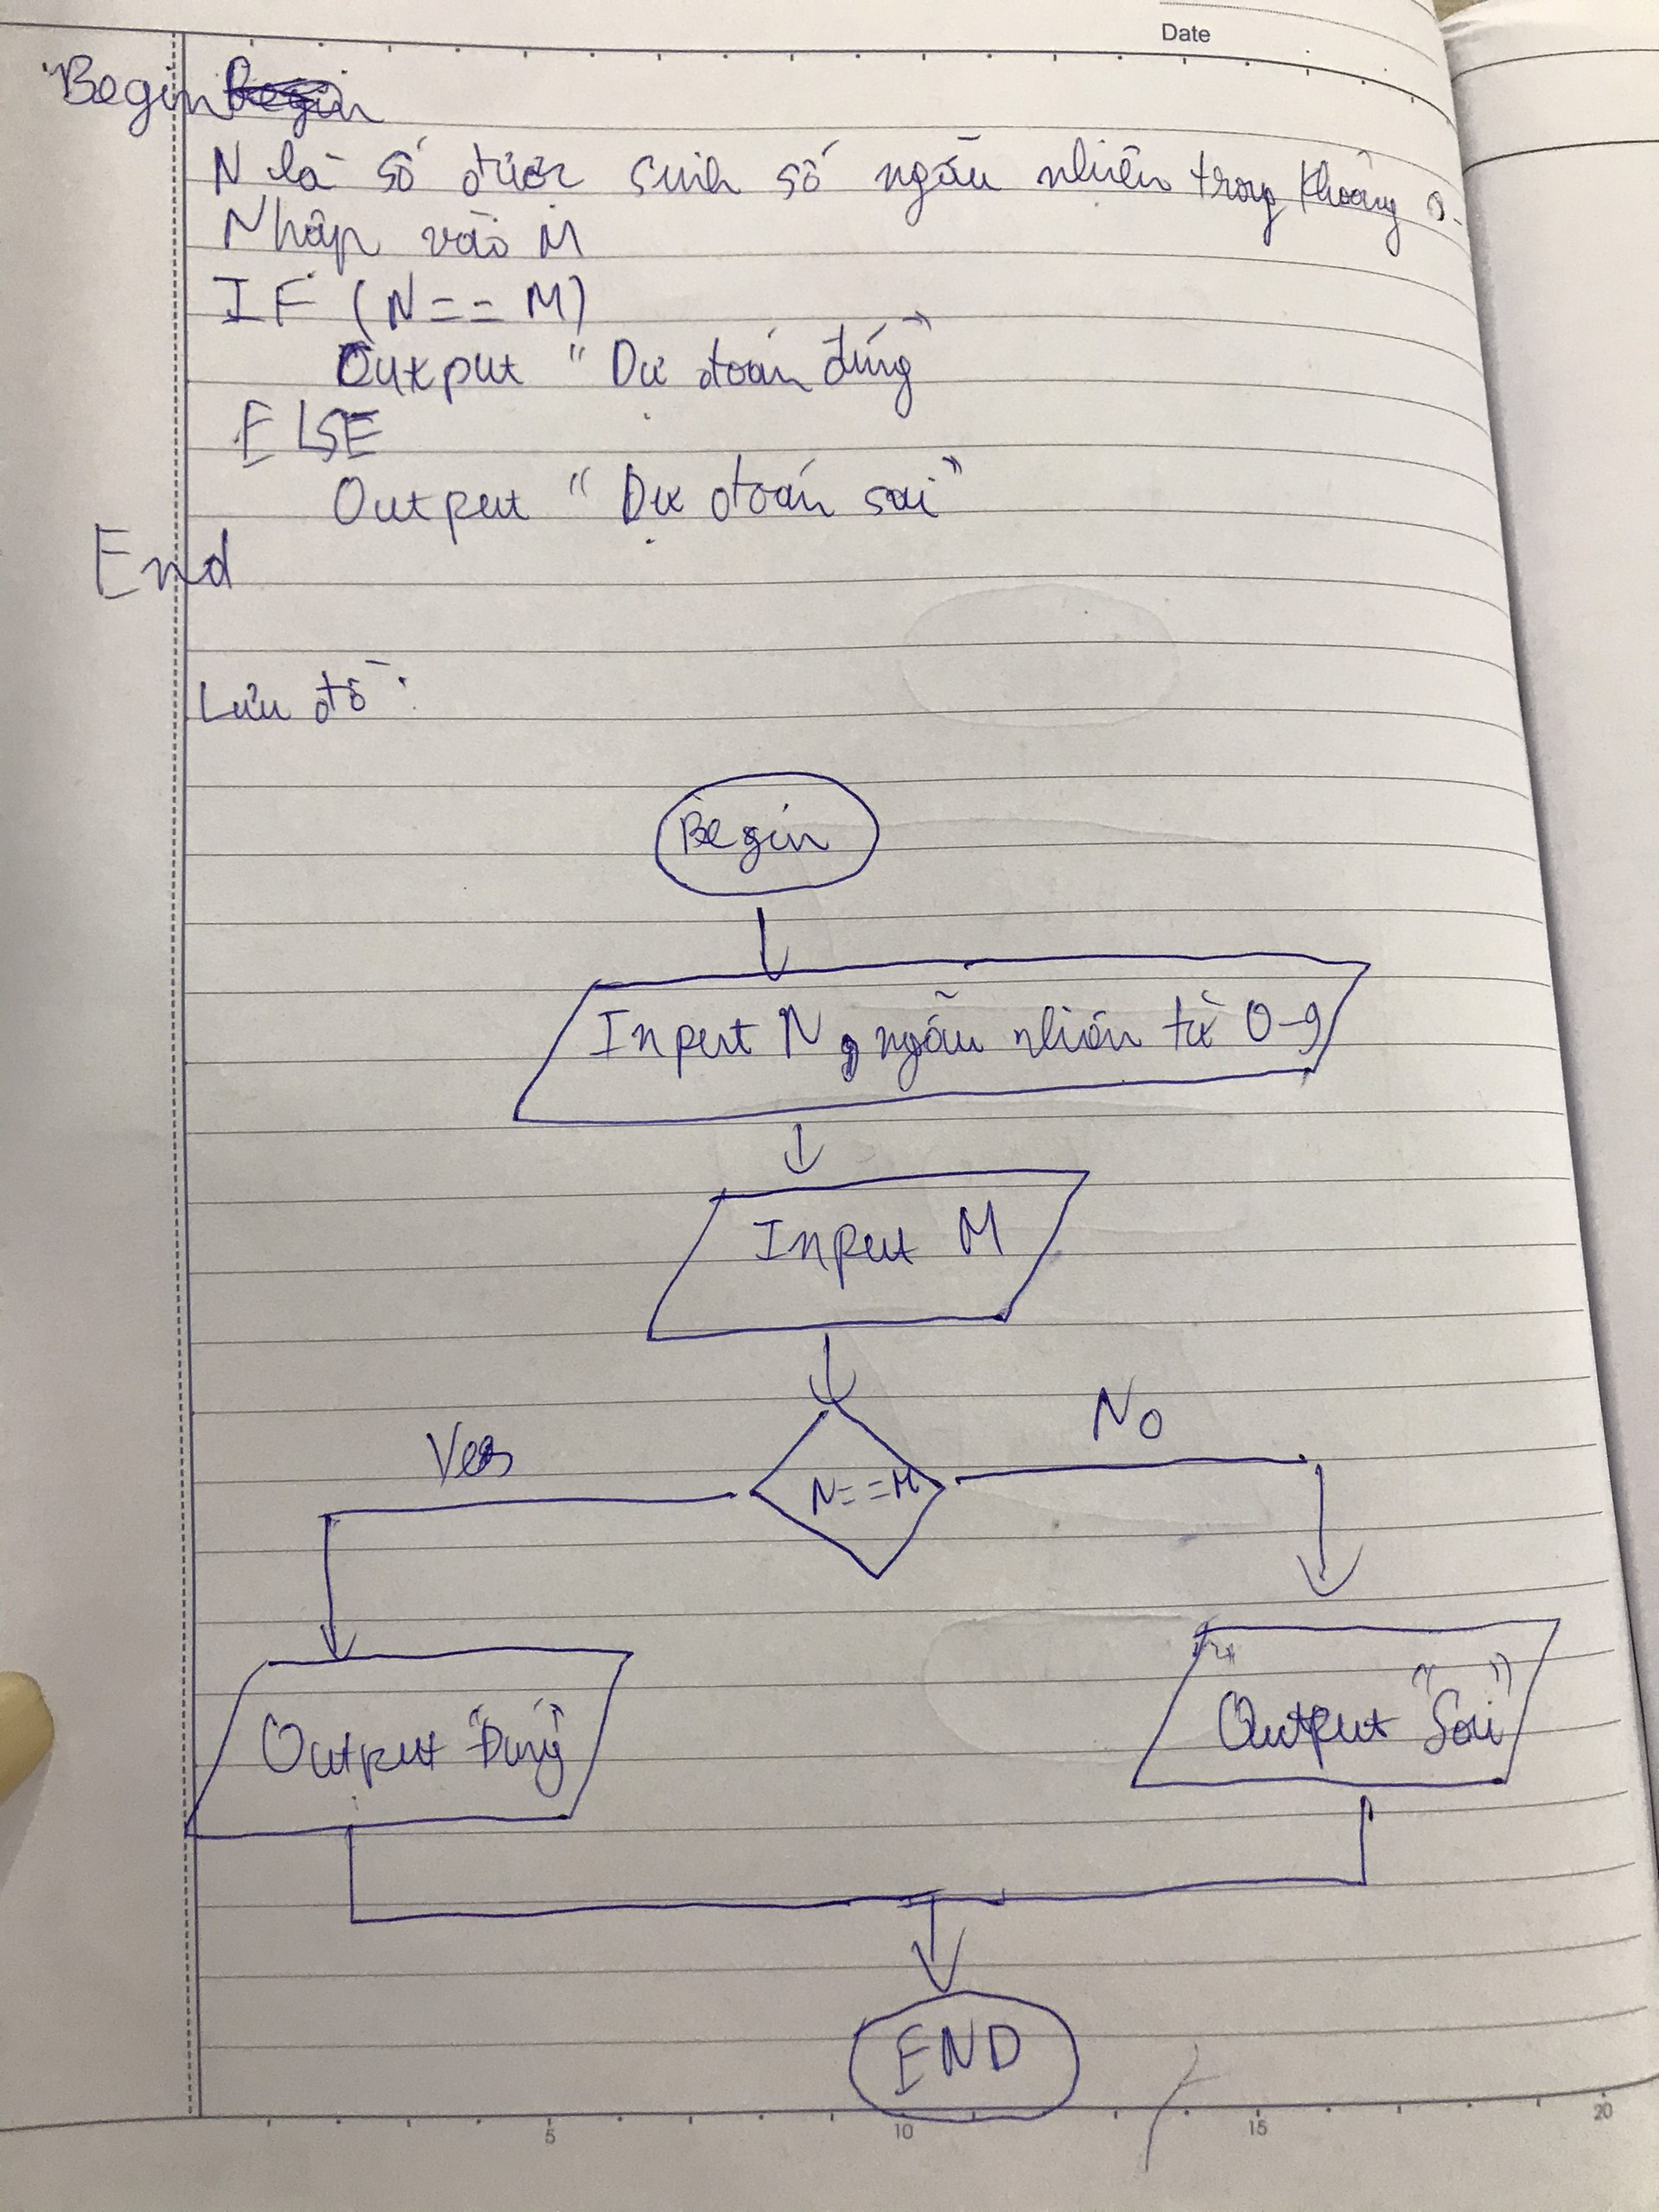 Date
Begin
N là số được sinh số ngẫu nhiên trong khoảng 0-
Nhập vào M
IF (N == M)
Output "Dự đoán đúng"
ELSE
Output "Dự đoán sai"
End
Lưu đồ:
Begin
Input N, ngẫu nhiên từ 0-9
Input M
Yes
No
N==M
Output "Đúng"
Output "Sai"
END
5 10 15 20